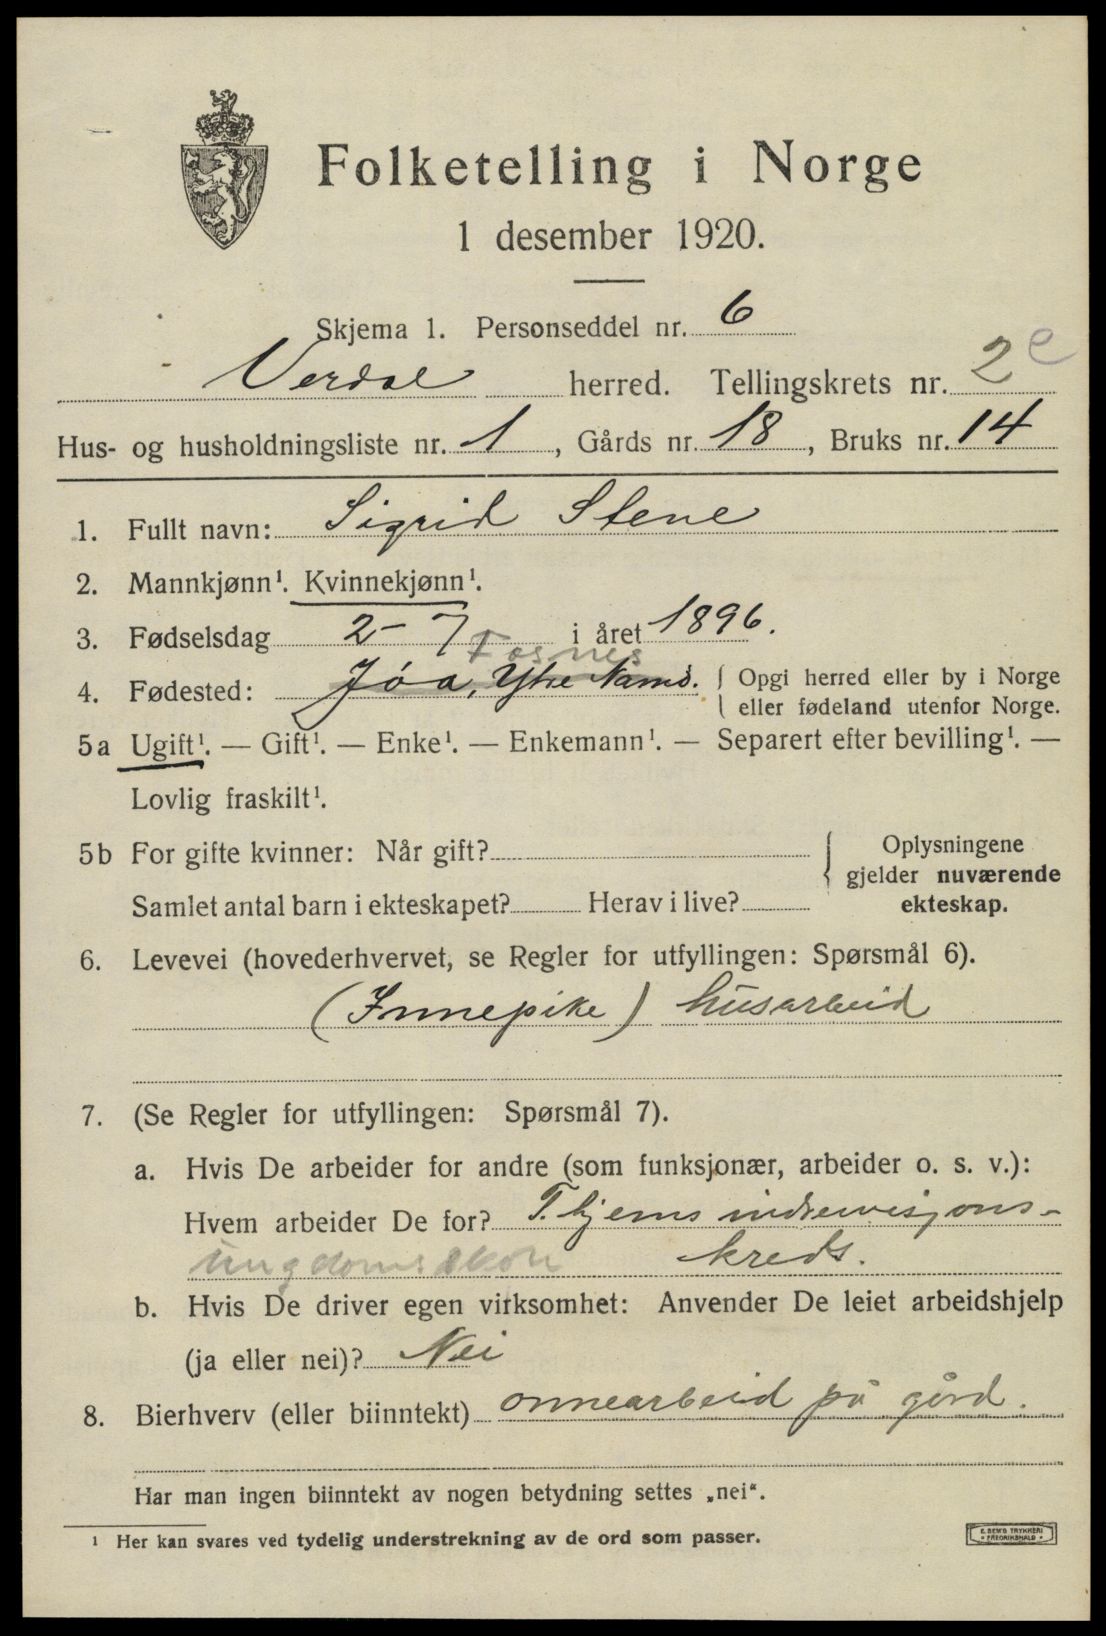 Folketelling i Norge
1 desember 1920.
Skjema 1. Personseddel nr. 6
Verdal herred. Tellingskrets nr. 2 e
Hus- og husholdningsliste nr. 1, Gårds nr. 18, Bruks nr. 14
1. Fullt navn: Sigrid Stene
2. Mannkjønn¹. Kvinnekjønn¹.
3. Fødselsdag 2-7 i året 1896.
Fosnes
4. Fødested: Jøa, Ytre Namd. { Opgi herred eller by i Norge
eller fødeland utenfor Norge.
5a Ugift¹. — Gift¹. — Enke¹. — Enkemann¹. — Separert efter bevilling¹. —
Lovlig fraskilt¹.
5b For gifte kvinner: Når gift?
Samlet antal barn i ekteskapet? Herav i live?
{ Oplysningene
gjelder nuværende
ekteskap.
6. Levevei (hovederhvervet, se Regler for utfyllingen: Spørsmål 6).
(Innepike) husarbeid
7. (Se Regler for utfyllingen: Spørsmål 7).
a. Hvis De arbeider for andre (som funksjonær, arbeider o. s. v.):
Hvem arbeider De for? T. hjems indremisjons-
ungdomsskole kreds.
b. Hvis De driver egen virksomhet: Anvender De leiet arbeidshjelp
(ja eller nei)? Nei
8. Bierhverv (eller biinntekt) onnearbeid på gård.
Har man ingen biinntekt av nogen betydning settes „nei“.
¹ Her kan svares ved tydelig understrekning av de ord som passer.
E. SEM'S TRYKKERI
FREDRIKSHALD